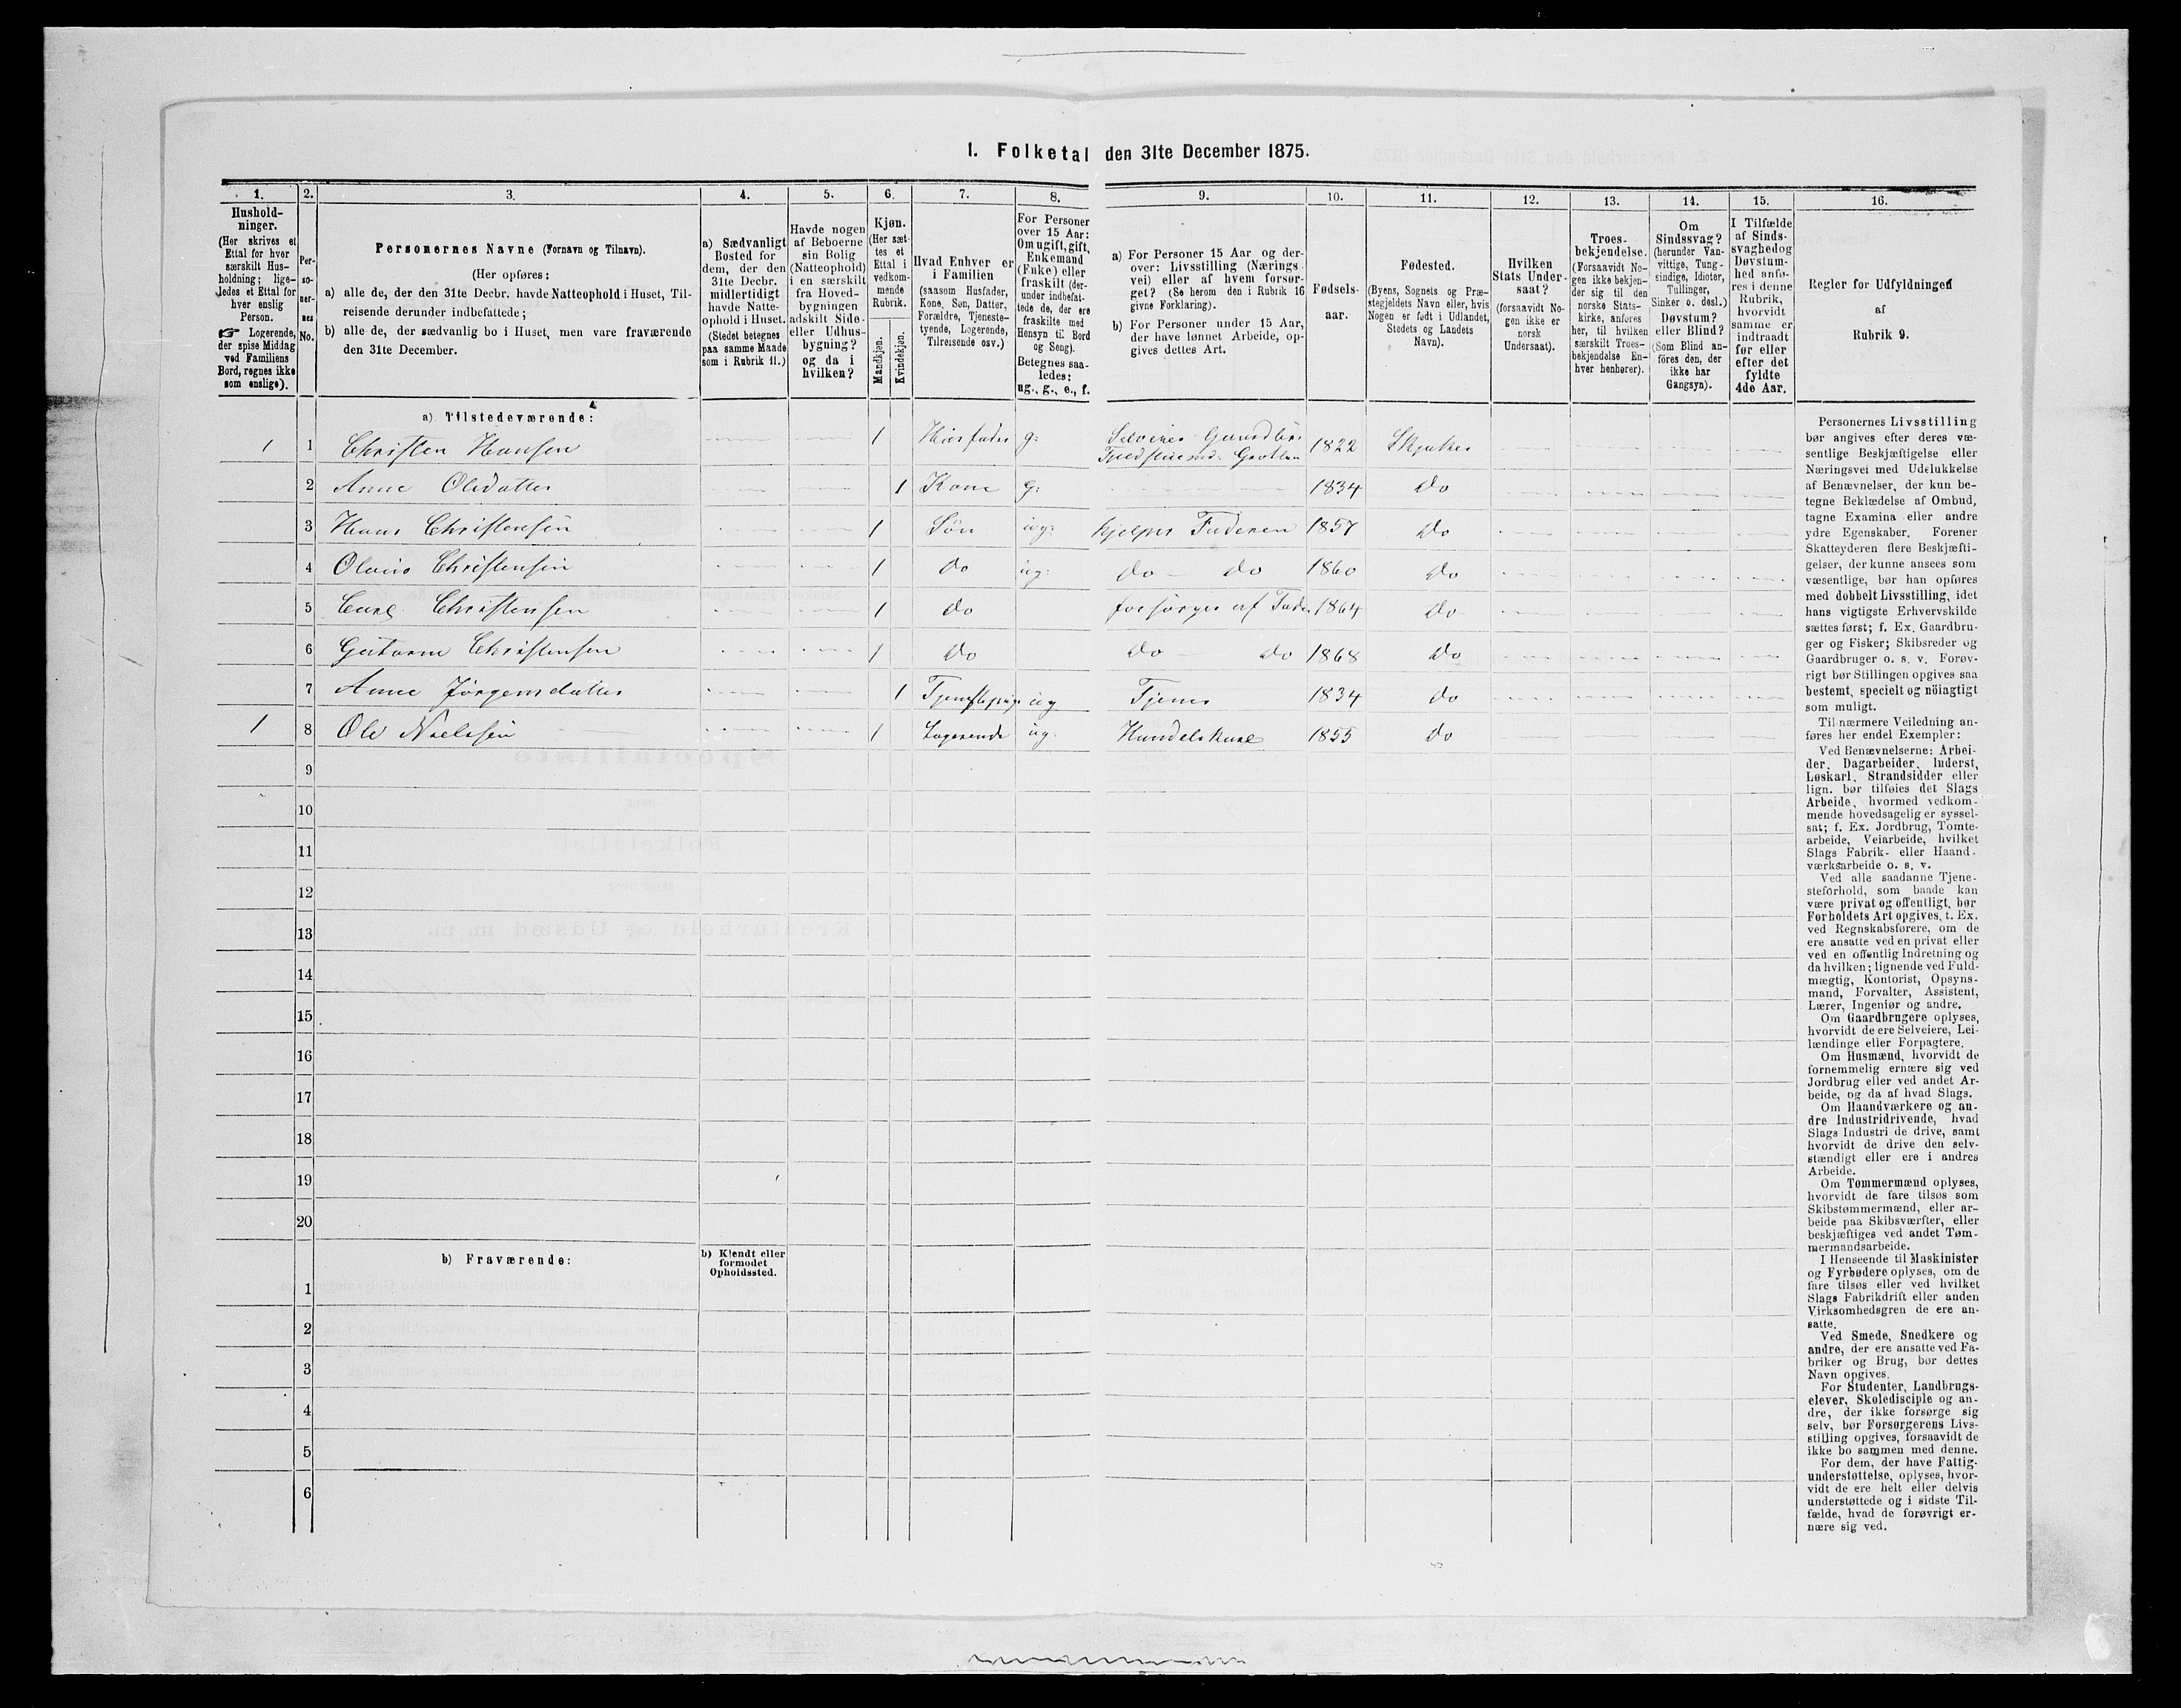 1. Folketal den 31te December 1875.
1.
Hushold-
ninger.
(Her skrives et
Ettal for hver
særskilt Hus-
holdning; lige-
ledes et Ettal for
hver enslig
Person.
☞ Logerende,
der spise Middag
ved Familiens
Bord, regnes ikke
som enslige).
2.
Per-
so-
ner-
nes
No.
3.
Personernes Navne (Fornavn og Tilnavn).
(Her opføres:
a) alle de, der den 31te Decbr. havde Natteophold i Huset, Til-
reisende derunder indbefattede;
b) alle de, der sædvanlig bo i Huset, men vare fraværende
den 31te December.
4.
a) Sædvanligt
Bosted for
dem, der den
31te Decbr.
midlertidigt
havde Natte-
ophold i Huset.
(Stedet betegnes
paa samme Maade
som i Rubrik 11.)
5.
Havde nogen
af Beboerne
sin Bolig
(Natteophold)
i en særskilt
fra Hoved-
bygningen
adskilt Side-
eller Udhus-
bygning?
og da i
hvilken?
6.
Kjøn.
(Her sæt-
tes et
Ettal i
vedkom-
mende
Rubrik.
Mandkjøn.
Kvindekjøn.
7.
Hvad Enhver er
i Familien
(saasom Husfader,
Kone, Søn, Datter,
Forældre, Tjeneste-
tyende, Logerende,
Tilreisende osv.)
8.
For Personer
over 15 Aar:
Om ugift, gift,
Enkemand
(Enke) eller
fraskilt (der-
under indbefat-
tede de, der ere
fraskilte med
Hensyn til Bord
og Seng).
Betegnes saa-
ledes:
ug., g., e., f.
9.
a) For Personer 15 Aar og der-
over: Livsstilling (Nærings-
vei) eller af hvem forsør-
get? (Se herom den i Rubrik 16
givne Forklaring).
b) For Personer under 15 Aar,
der have lønnet Arbeide, op-
gives dettes Art.
10.
Fødsels-
aar.
11.
Fødested.
(Byens, Sognets og Præ-
stegjeldets Navn eller, hvis
Nogen er født i Udlandet,
Stedets og Landets
Navn).
12.
Hvilken
Stats Under-
saat?
(forsaavidt No-
gen ikke er
norsk
Undersaat).
13.
Troes-
bekjendelse.
(Forsaavidt No-
gen ikke bekjen-
der sig til den
norske Stats-
kirke, anføres
her, til hvilken
særskilt Troes-
bekjendelse En-
hver henhører).
14.
Om
Sindssvag?
(herunder Van-
vittige, Tung-
sindige, Idioter,
Tullinger,
Sinker o. desl.)
Døvstum?
eller Blind?
(Som Blind an-
føres den, der
ikke har
Gangsyn).
15.
I Tilfælde
af Sinds-
svaghed og
Døvstum-
hed anfø-
res i denne
Rubrik,
hvorvidt
samme er
indtraadt
før eller
efter det
fyldte
4de Aar.
16.
Regler for Udfyldningen
af
Rubrik 9.
a) Tilstedeværende:
1 1 Christen Hansen 1 Huusfader g: Selveier Gaardbr: 1822 Skjaker
Fjeldstuemd:
2 Anne Olsdatter 1 Kone g: 1834 do
3 Hans Christensen 1 Søn ug: hjelper Faderen 1857 do
4 Christensen 1 do ug: do do 1860 do
5 Carl Christensen 1 do forsørges af Fade. 1864 do
6 Christensen 1 do do do 1868 do
7 Anne Jørgensdatter 1 ug Tjener 1834 do
1 8 Ole Nielssen 1 Logerende ug. Handelskarl 1855 do
9
10
11
12
13
14
15
16
17
18
19
20
b) Fraværende:
b) Kjendt eller
formodet
Opholdssted.
1
2
3
4
5
6
Personernes Livsstilling
bør angives efter deres væ-
sentlige Beskjæftigelse eller
Næringsvei med Udelukkelse
af Benævnelser, der kun be-
tegne Beklædelse af Ombud,
tagne Examina eller andre
ydre Egenskaber. Forener
Skatteyderen flere Beskjæfti-
gelser, der kunne ansees som
væsentlige, bør han opføres
med dobbelt Livsstilling, idet
hans vigtigste Erhvervskilde
sættes først; f. Ex. Gaardbru-
ger og Fisker; Skibsreder og
Gaardbruger o. s. v. Forøv-
rigt bør Stillingen opgives saa
bestemt, specielt og nöiagtigt
som muligt.
Til nærmere Veiledning an-
føres her endel Exempler:
Ved Benævnelserne: Arbei-
der, Dagarbeider, Inderst,
Løskarl, Strandsidder eller
lign. bør tilføies det Slags
Arbeide, hvormed vedkom-
mende hovedsagelig er syssel-
sat; f. Ex. Jordbrug, Tomte-
arbeide, Veiarbeide, hvilket
Slags Fabrik- eller Haand-
værksarbeide o. s. v.
Ved alle saadanne Tjene-
steforhold, som baade kan
være privat og offentligt, bør
Forholdets Art opgives, t. Ex.
ved Regnskabsførere, om de
ere ansatte ved en privat eller
ved en offentlig Indretning og
da hvilken; lignende ved Fuld-
mægtig, Kontorist, Opsyns-
mand, Forvalter, Assistent,
Lærer, Ingeniør og andre.
Om Gaardbrugere oplyses,
hvorvidt de ere Selveiere, Lei-
lændinge eller Forpagtere.
Om Husmænd, hvorvidt de
fornemmelig ernære sig ved
Jordbrug eller ved andet Ar-
beide, og da af hvad Slags.
Om Haandværkere og an-
dre Industridrivende, hvad
Slags Industri de drive, samt
hvorvidt de drive den selv-
stændigt eller ere i andres
Arbeide.
Om Tømmermænd oplyses,
hvorvidt de fare tilsøs som
Skibstømmermænd, eller ar-
beide paa Skibsværfter, eller
beskjæftiges ved andet Tøm-
mermandsarbeide.
I Henseende til Maskinister
og Fyrbødere oplyses, om de
fare tilsøs eller ved hvilket
Slags Fabrikdrift eller anden
Virksomhedsgren de ere an-
satte.
Ved Smede, Snedkere og
andre, der ere ansatte ved Fa-
briker og Brug, bør dettes
Navn opgives.
For Studenter, Landbrugs-
elever, Skoledisciple og an-
dre, der ikke forsørge sig
selv, bør Forsørgerens Livs-
stilling opgives, forsaavidt de
ikke bo sammen med denne.
For dem, der have Fattig-
understøttelse, oplyses, hvor-
vidt de ere helt eller delvis
understøttede og i sidste Til-
fælde, hvad de forøvrigt er-
nære sig ved.